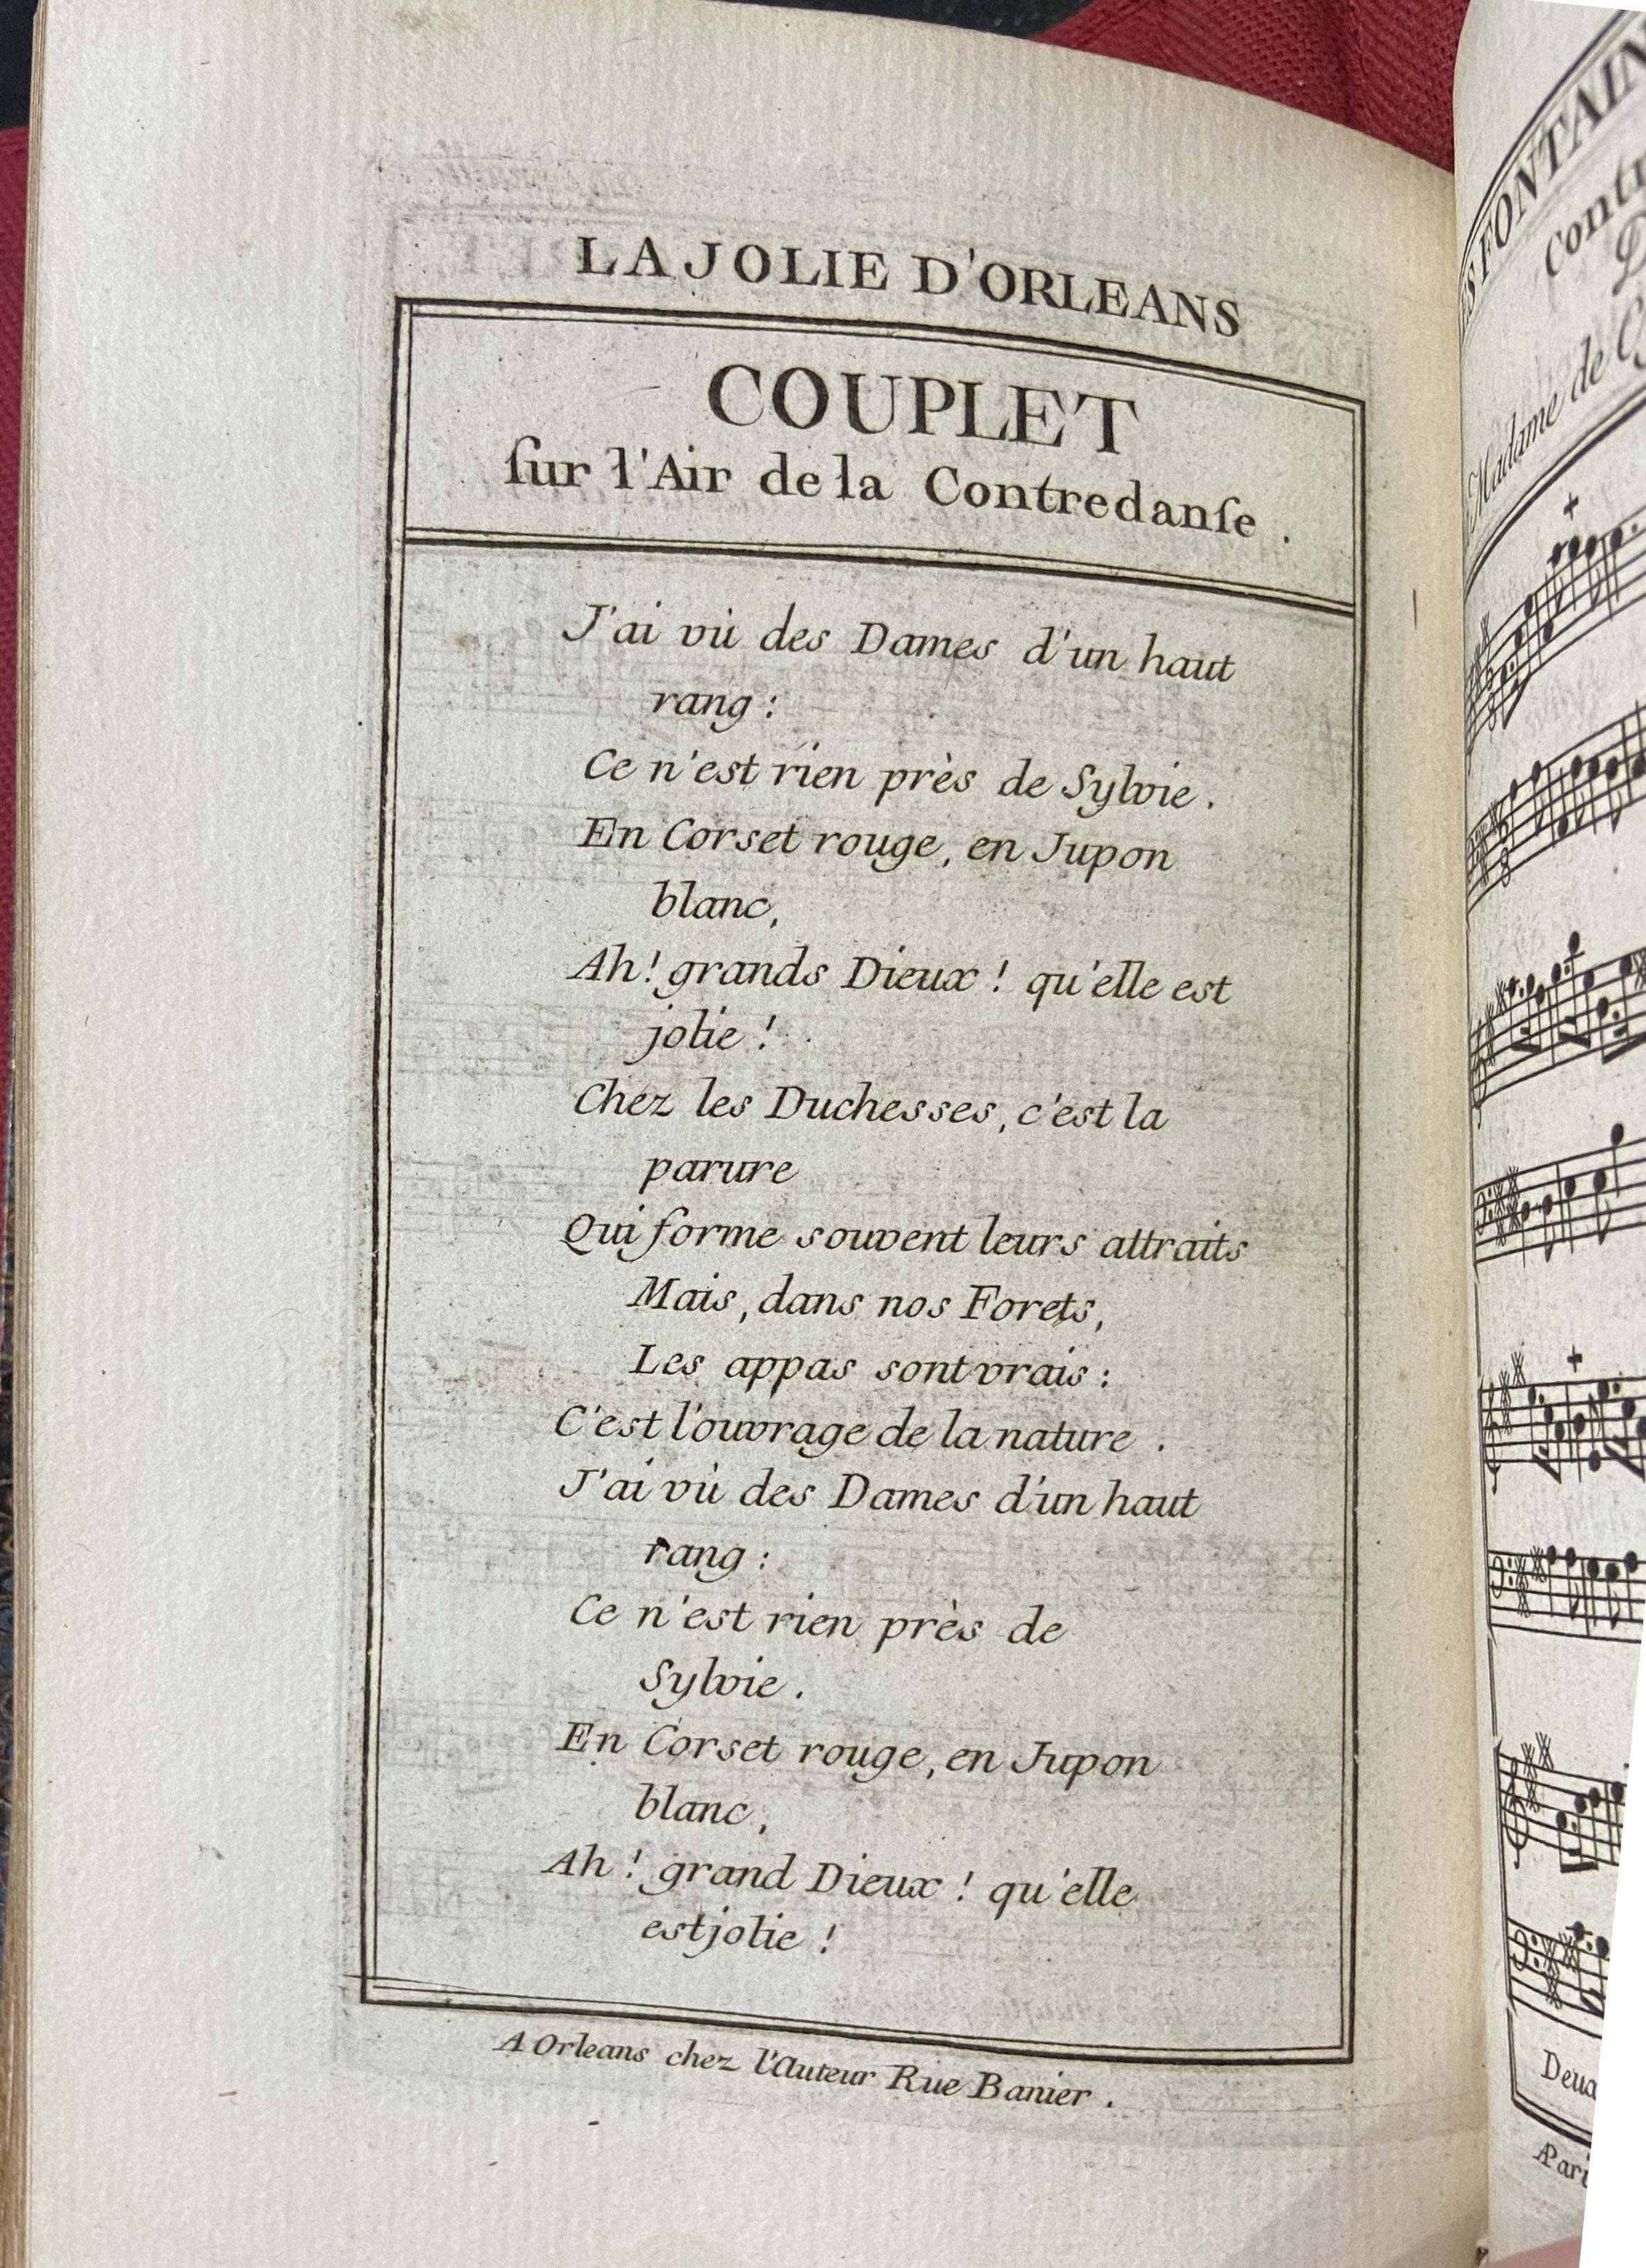 LA JOLIE D'ORLEANS
COUPLET
ſur l'Air de la Contredanſe .
J'ai vù des Dames d'un haut
rang :
Ce n'est rien près de Sylvie .
En Corset rouge, en Jupon
blanc,
Ah ! grands Dieux ! qu'elle est
jolie !
Chez les Duchesses, c'est la
parure
Qui forme souvent leurs attraits
Mais, dans nos Forets,
Les appas sont vrais :
C'est l'ouvrage de la nature .
J'ai vù des Dames d'un haut
rang :
Ce n'est rien près de
Sylvie .
En Corset rouge, en Jupon
blanc,
Ah ! grand Dieux ! qu'elle
est jolie !
A Orleans chez l'Auteur Rue Banier .
ES FONTAIN
Contr
Madame de
Deux
A Pari